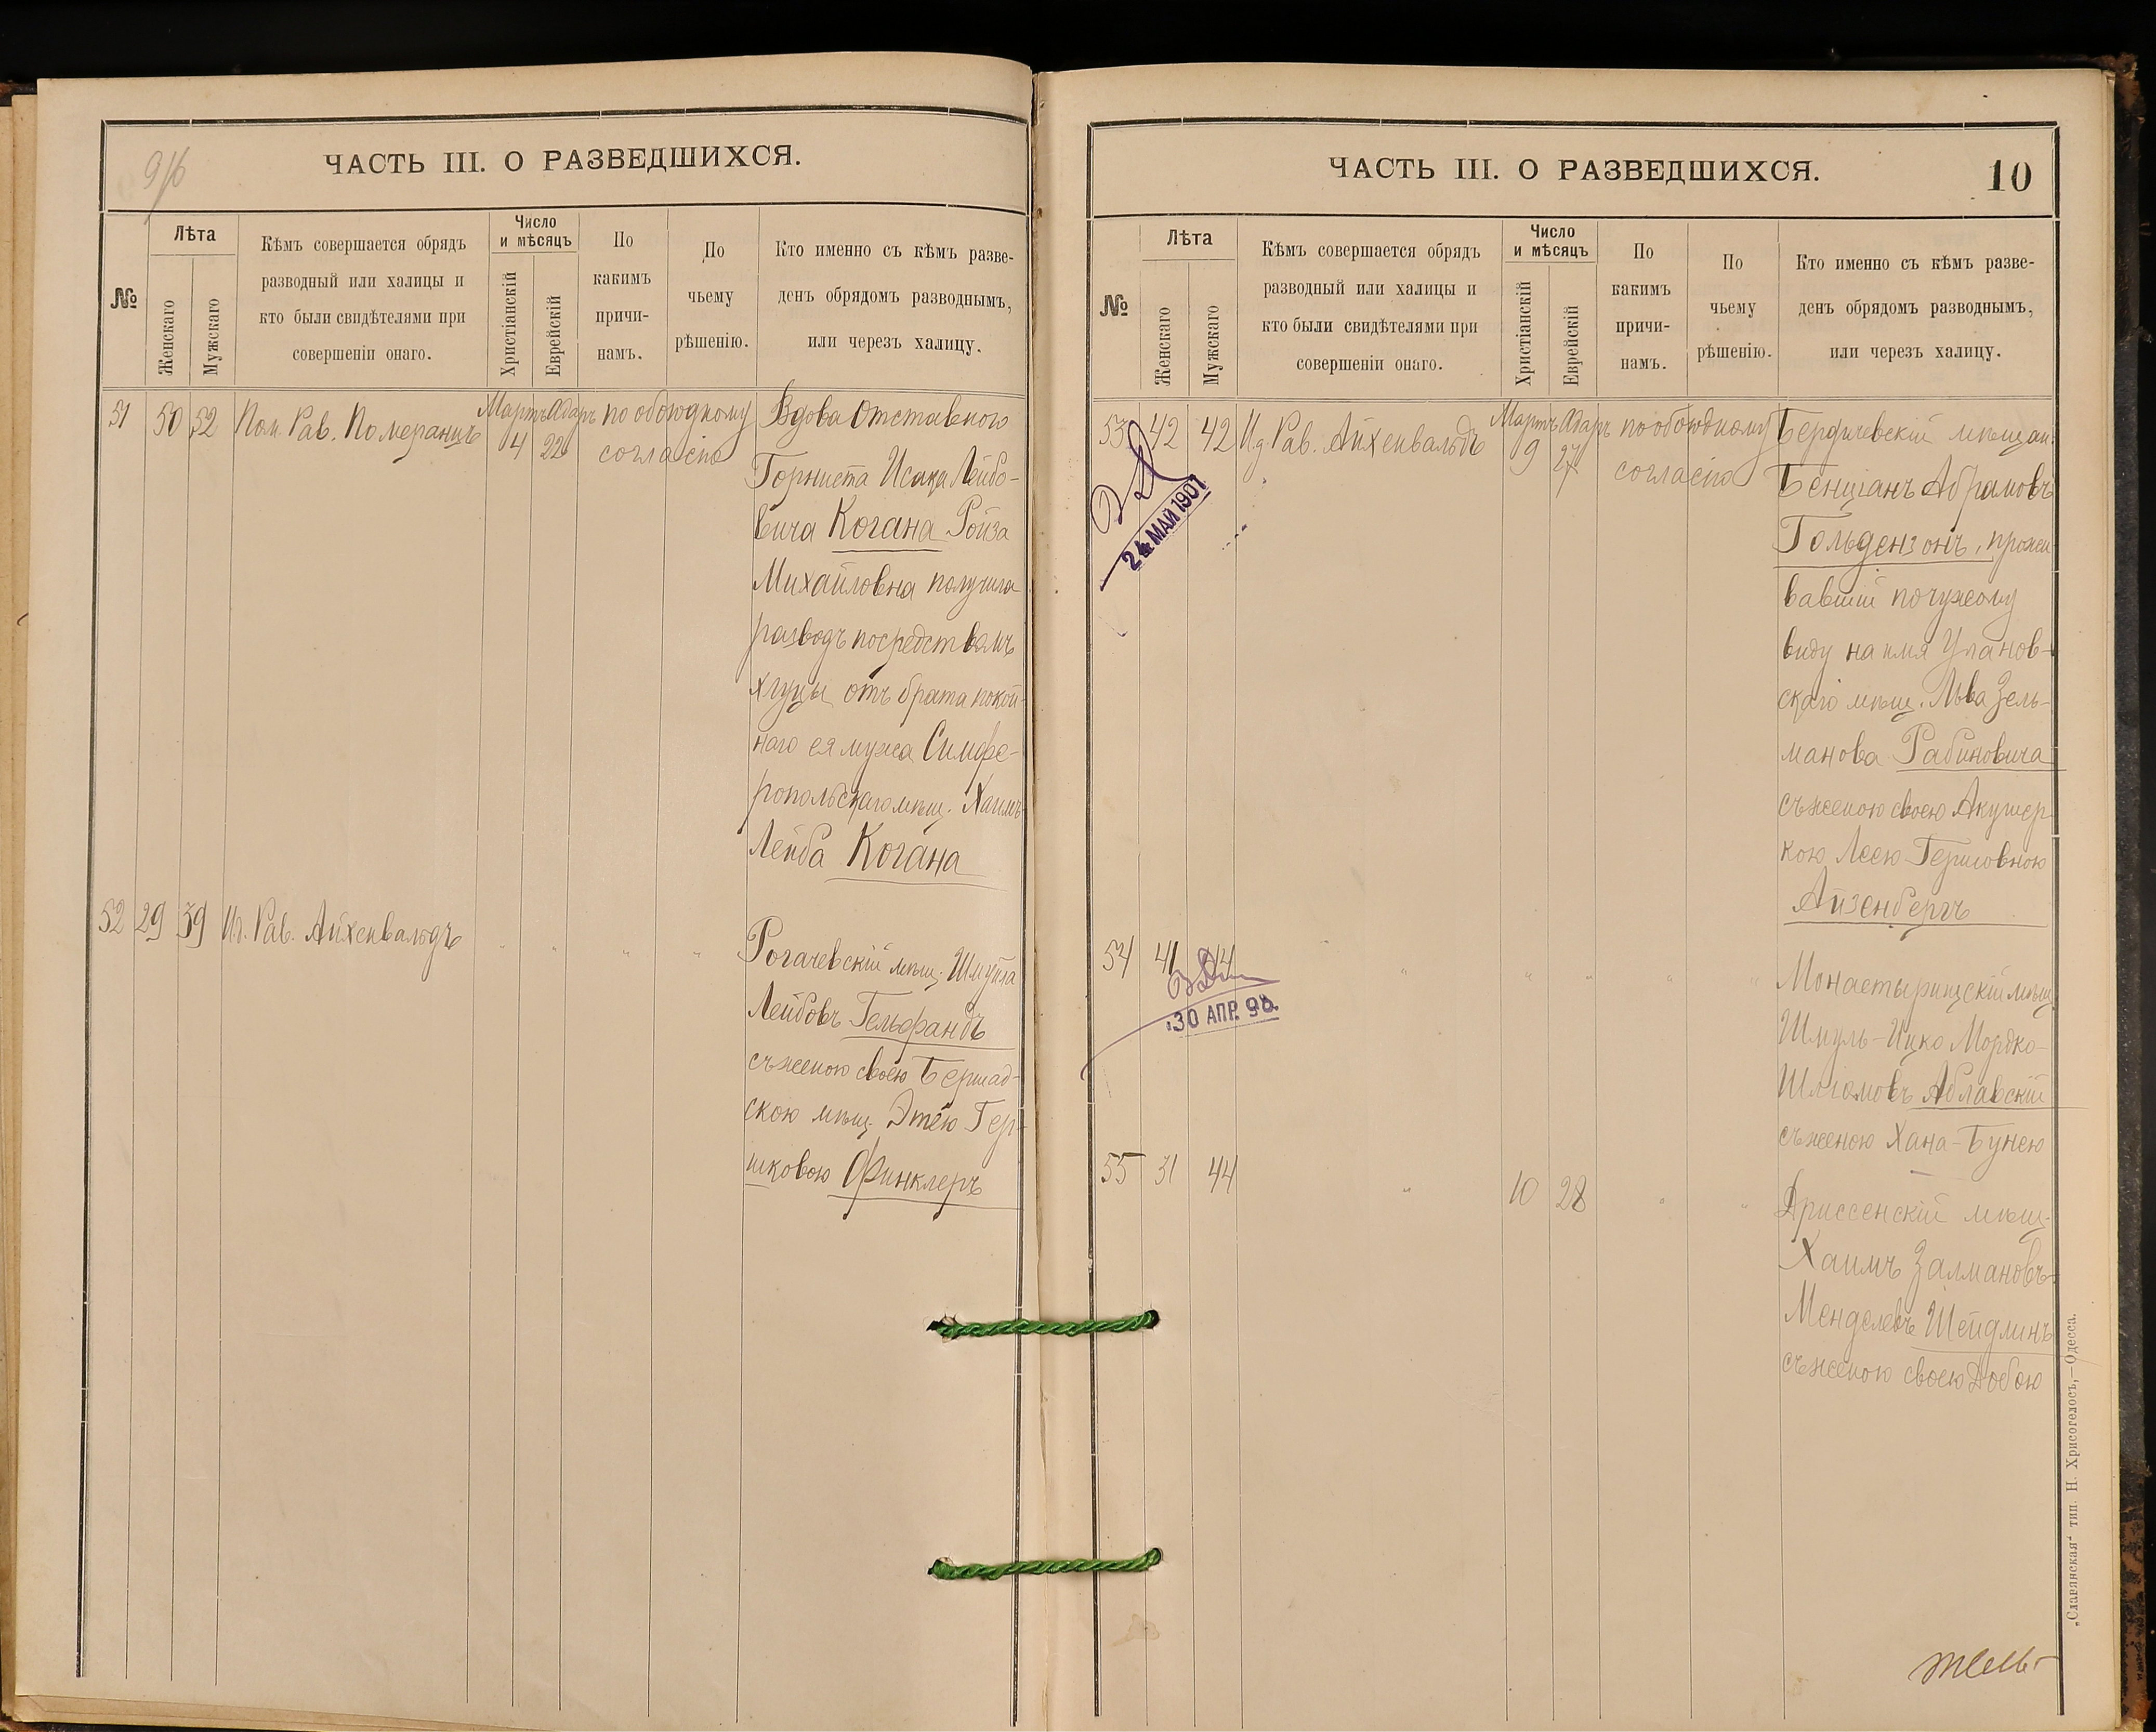 9/6
ЧАСТЬ III. О РАЗВЕДШИХСЯ.
№
Лѣта
Женскаго
Мужскаго
Кѣмъ совершается обрядъ
разводный или халицы и
кто были свидѣтелями при
совершеніи онаго.
Число
и мѣсяцъ
Христіанскій
Еврейскій
По
какимъ
причи-
намъ.
По
чьему
рѣшенію.
Кто именно съ кѣмъ разве-
денъ обрядомъ разводнымъ,
или черезъ халицу.
51 50 52 Пом. Рав. Померанцъ Мартъ Адаръ по обоюдному Вдова Отставного
4 22 согласію
Горниста Исака Лейбо-
вича Когана Ройза
Михайловна получила
разводъ посредствомъ
отъ брата покой-
наго ея мужа Симфе-
ропольскаго мѣщ. Хаимъ
Лейба Когана
52 29 39 Рав. Айхенвальдъ " " " "
Рогачевскій мѣщ. Шмуйла
Лейбовъ Гельфандъ
съ женою своею Бершад-
скою мѣщ. Этею Гер-
шковою Финклеръ
ЧАСТЬ III. О РАЗВЕДШИХСЯ.
10
№
Лѣта
Женскаго
Мужскаго
Кѣмъ совершается обрядъ
разводный или халицы и
кто были свидѣтелями при
совершеніи онаго.
Число
и мѣсяцъ
Христіанскій
Еврейскій
По
какимъ
причи-
намъ.
По
чьему
рѣшенію.
Кто именно съ кѣмъ разве-
денъ обрядомъ разводнымъ,
или черезъ халицу.
53 42 42 Рав. Айхенвальдъ Мартъ Адаръ по обоюдному Бердичевскій мѣщан.
9 27 согласію
Бенціанъ Абрамовъ
24 МАЙ 1907
Гольдензонъ, прожи-
вавшій по чужому
виду на имя Уланов-
скаго мѣщ. Льва Зель-
манова Рабиновича
съ женою своею Акушер-
кою Леею Гершовною
Айзенбергъ
54 41 44 " " " " "
30 АПР. 98.
Монастырищскій мѣщ.
Шмуль-Ицко Мордко-
Шліомовъ Аблавскій
съ женою Хана-Бунею
55 31 44 " 10 28 " "
Дриссенскій мѣщ.
Хаимъ Залмановъ-
Менделевъ Шейдлинъ
съ женою своею Добою
„Славянская“ тип. Н. Хрисогелосъ,—Одесса.